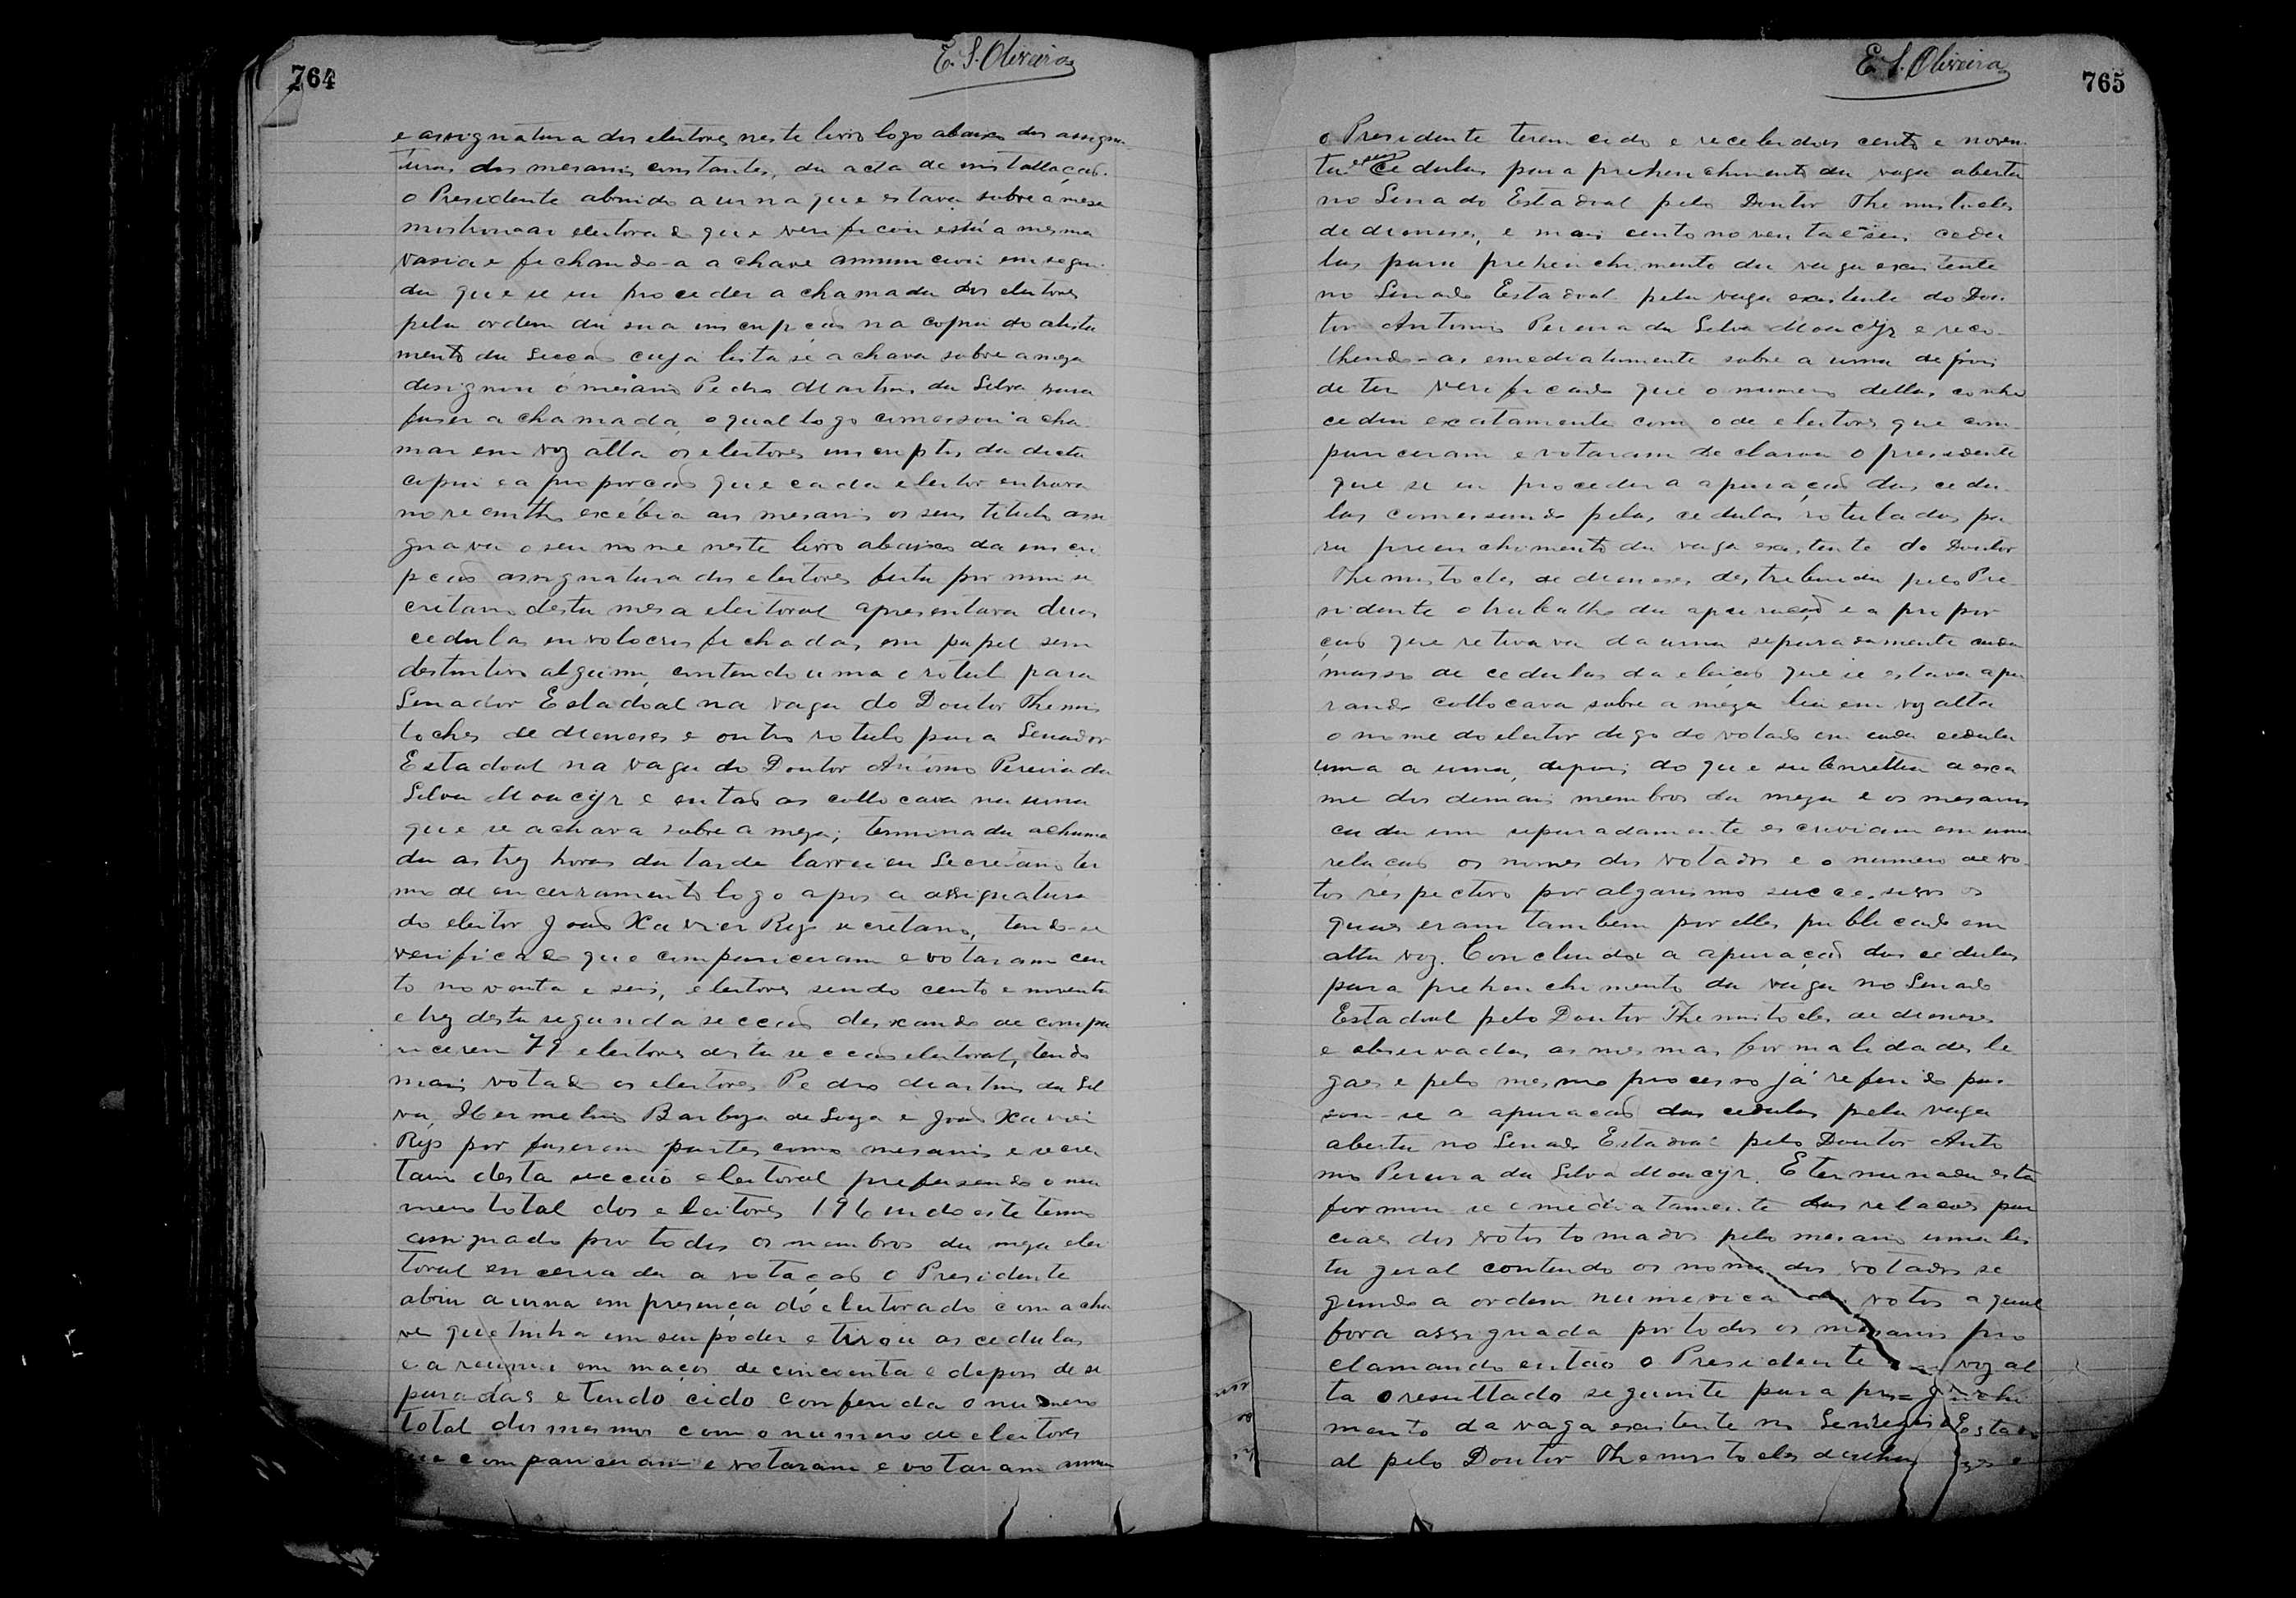 764
E. S. Oliveira
e assignatura dos eleitores neste livro logo abaixo das assigna
turas dos mesarios constantes, da acta de installação.
o Presidente abrindo a urna que estava sobre a mesa
mostrou ao eleitorado que verificou está a mesma
vasia e fechando-a a chave annunciou em segui
da que se ia proceder a chamada dos eleitores
pela ordem da sua inscripção na copia do alista
mento da secção cuja lista se achava sobre a meza
designou o mesario Pedro Martins da Silva para
faser a chamada, o qual logo comessou a cha
mar em voz alta os eleitores inscriptos da dicta
copia e a proporcão que cada eleitor entrava
no recintho excebia aos mesarios os seus titulos assi
gnava o seu nome neste livro abaixo da inscri
pção assignatura dos eleitores feita por mim se
cretario desta mesa eleitoral apresentava duas
cedulas involocros fechadas em papel sem
destintivo algum, contendo uma o rotulo para
Senador Estadoal na vaga do Doutor Themis
tocles de Meneses e outro rotulo para Senador
Estadoal na vaga do Doutor Antonio Pereira da
Silva Moacyr e entaõ as collocava na urna
que se achava sobre a meza; terminada a chama
da as trez horas da tarde lavrei eu Secretario ter
mo de encerramento logo apos a assignatura
do eleitor Joaõ Xavier Reys secretario, tendo-se
verificado que compareceram e votaram cen
to noventa e seis, eleitores sendo cento e noventa
e trez desta segunda secçaõ deixando de compa
recerem 79 eleitores desta secçaõ eleitoral, tendo
mais votado os eleitores Pedro Martins da Sil
va, Hermelino Barboza de Souza e Joaõ Xavier
Reys por faserem partes como mesarios e secre
tario desta secção eleitoral prefasendo o nu
mero total dos eleitores 196 indo este termo
assignado por todos os membros da meza elei
toral encerrada a votaçaõ o Presidente
abriu a urna em presença do eleitorado com a cha
ve que tinha em seu poder e tirou as cedulas
e a reuniu em maços de cincoenta e depois de se
paradas e tendo cido conferida o numero
total dos mesmos com o numero de eleitores
que compareceram e votaram e votaram
765
E. S. Oliveira
o Presidente terem cido e recebidos cento e noven
ta e seis cedulas para prehenchimento da vaga aberta
no Senado Estadoal pelo Doutor Themistocles
de Meneses, e mais cento noventa e seis cedu
las para prehenchimento da vaga existente
no Senado Estadoal pela vaga existente do Dou
tor Antonio Pereira da Silva Moacyr e reco
lhendo-as emediatamente sobre a urna depois
de ter verificado que o numero dellas conhe
cedia exatamente com o de eleitores que com
pareceram e votaram declarou o presidente
que se ia proceder a apuraçaõ das cedu
las comessando pelas cedulas rotuladas pa
ra preenchimento da vaga existente do Doutor
Themistocles de Meneses destrebuida pelo Pre
sidente o trabalho da apuraçaõ e a propor
çaõ que retirava da urna separadamente cada
masso de cedulas da eleiçaõ que se estava apu
rando collocava sobre a meza lia em voz alta
o nome do eleitor digo do votado em cada cedula
uma a uma, depois do que submettia a exa
me dos demais membros da meza e os mesarios
cada um separadamente escreviam em uma
relaçaõ os nomes dos votados e o numero de vo
tos respectivo por algarismo successivos os
quaes eram tambem por elles publicado em
alta voz. Concluida a apuraçaõ das cedulas
para prehenchimento da vaga no Senado
Estadoal pelo Doutor Themistocles de Meneses
e observadas as mesmas formalidades le
gaes e pelo mesmo processo já referido pas
sou-se a apuracaõ das cedulas pela vaga
aberta no Senado Estadoal pelo Doutor Anto
nio Pereira da Silva Moacyr. E terminada esta
formou se emediatamente das relacoes par
ciaes dos votos tomados pelo mesario uma lis
ta geral contendo os nomes dos votados se
gundo a ordem numerica votos a qual
fora assignada por todos os mesarios pro
clamando então o Presidente em voz al
ta o resultado seguinte para
mento da vaga existente no Estado
al pelo Doutor Themistocles de